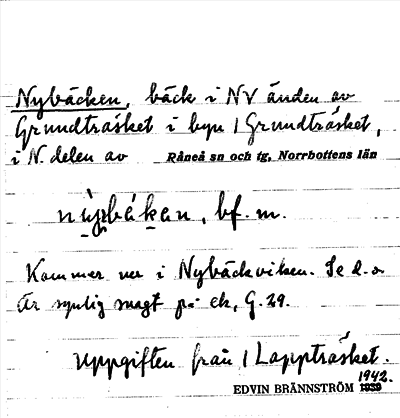 Nybäcken, bäck i NV änden av
Grundträsket i byn 1 Grundträsket,
i N. delen av Råneå sn och tg, Norrbottens län
bf. m.
Kommer ner i Nybäckviken. Se d. o
Är synlig svagt på ek, G. 29.
Uppgiften från 1 Lappträsket.
1942.
EDVIN BRÄNNSTRÖM 1939